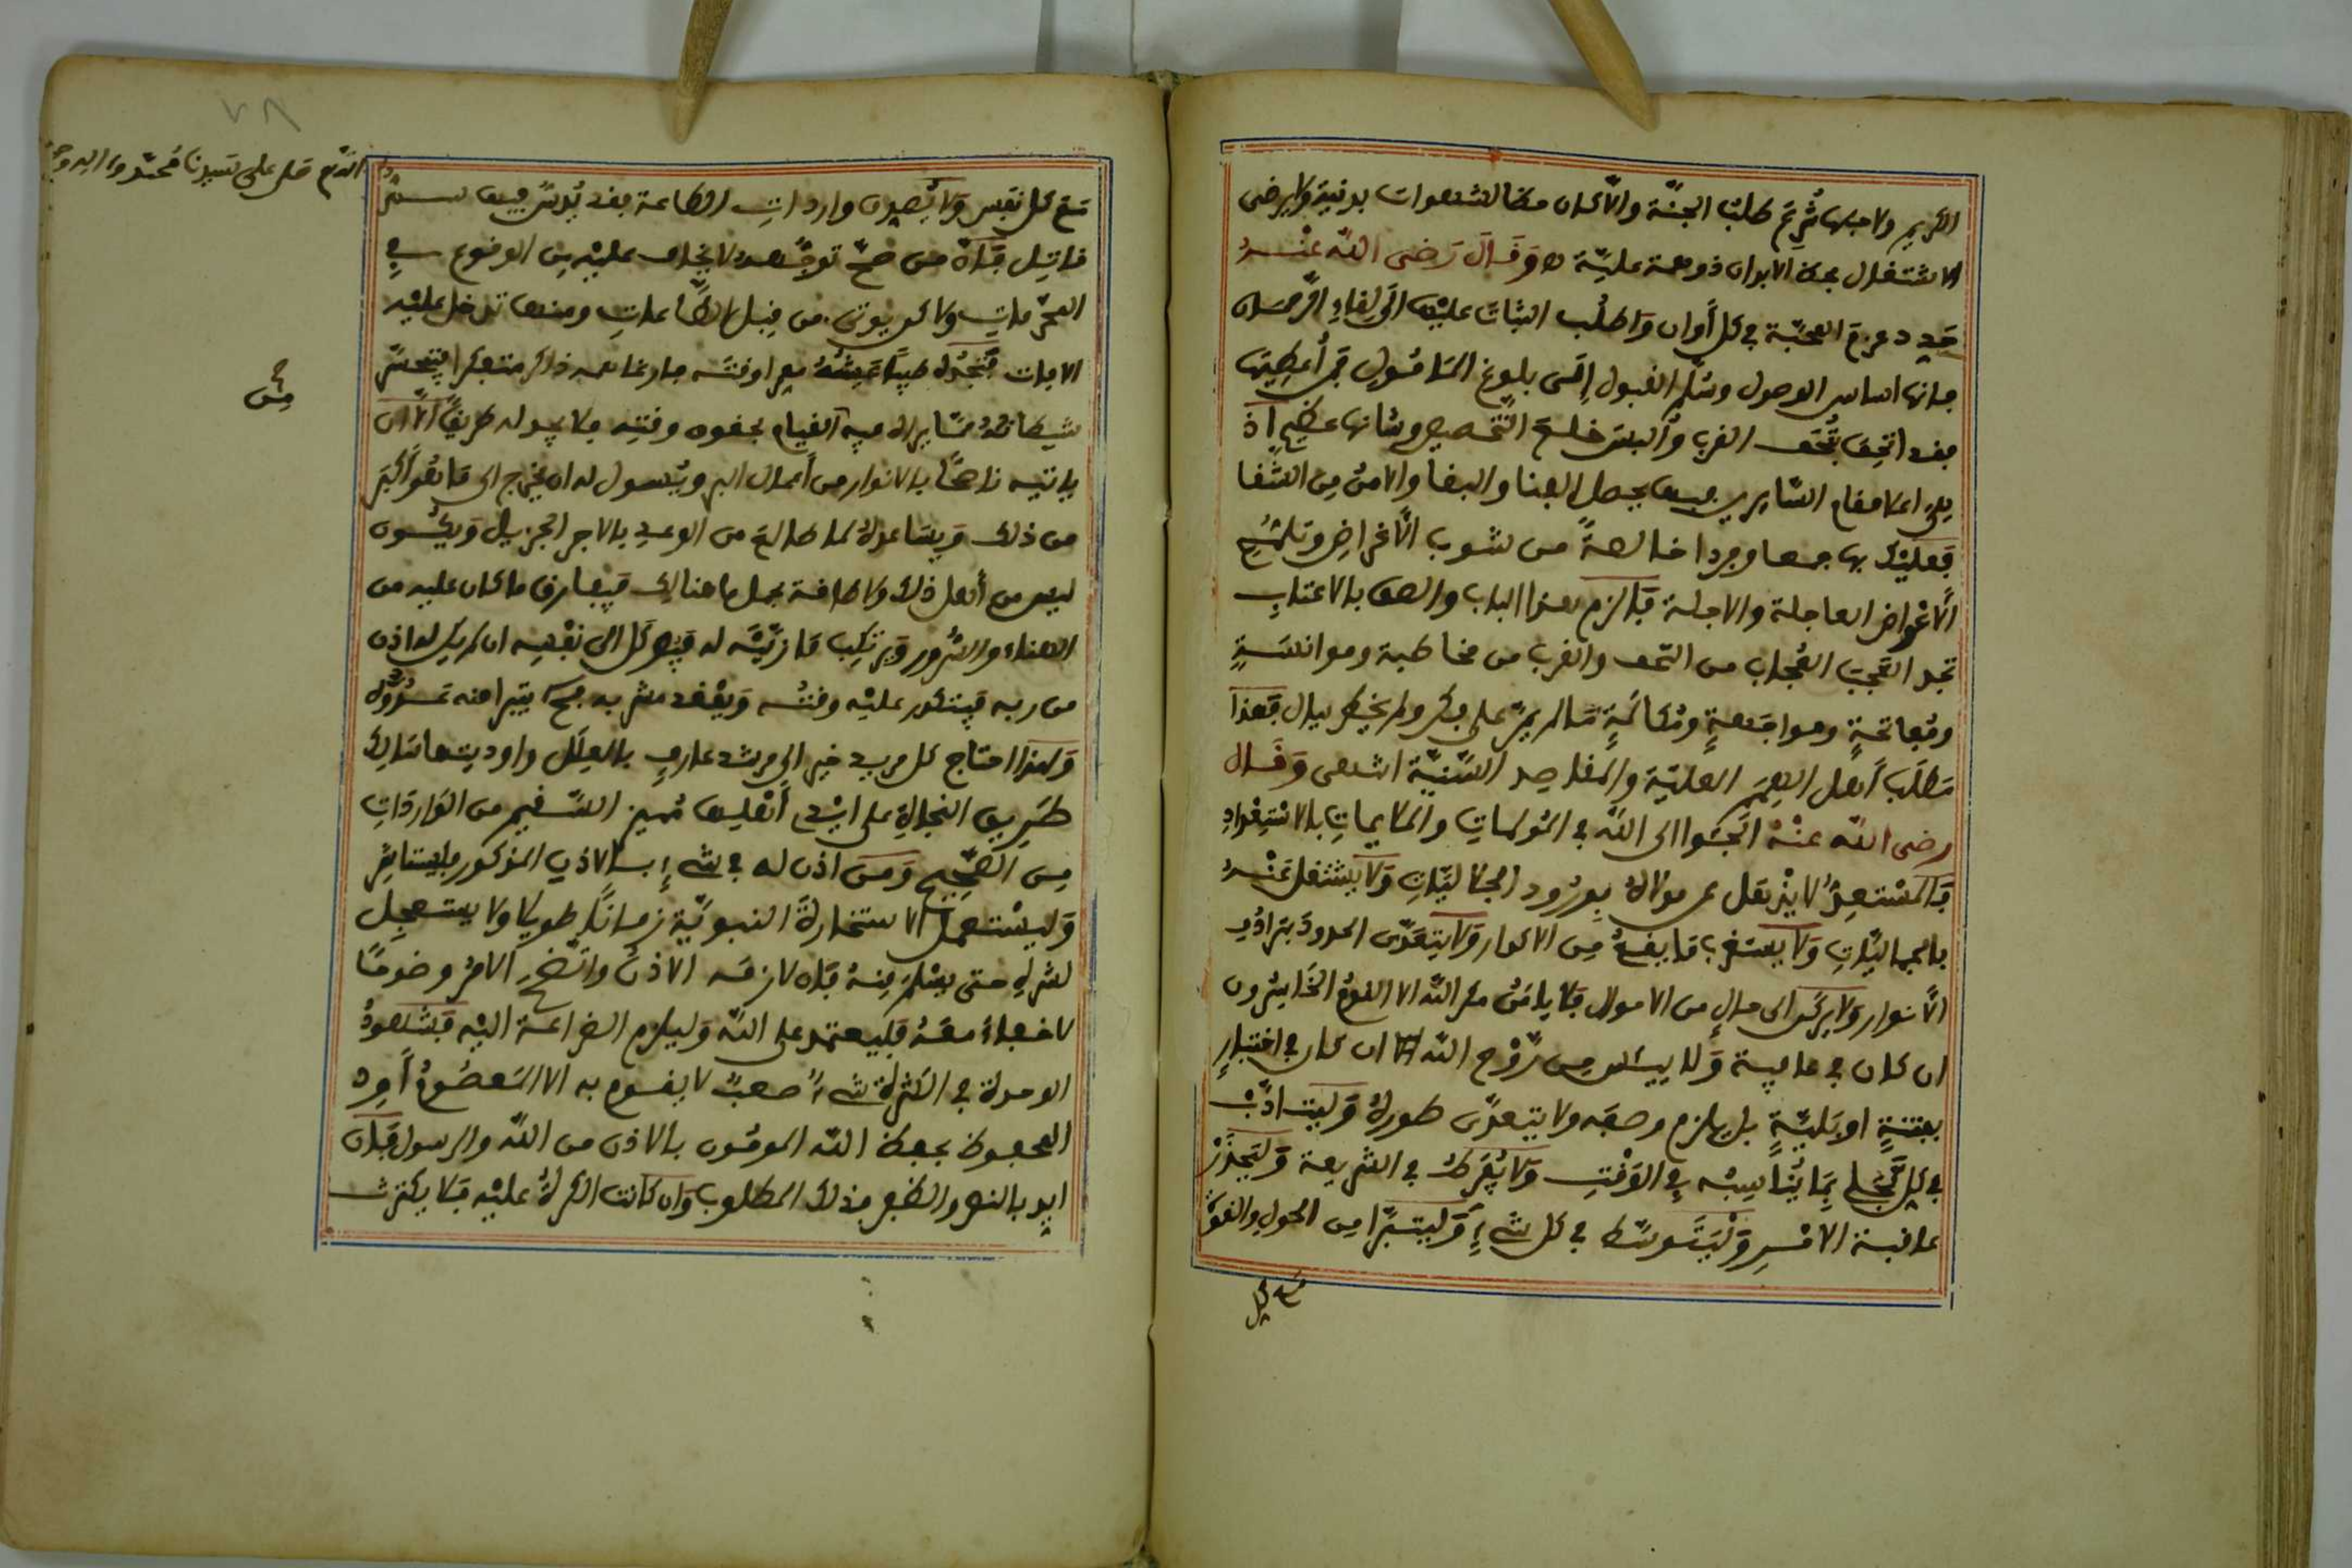 الكريم ولاجلها شرع طلب الجنة والاكان محالشهوات بدنية ولايرضى
الاشتغال بحظ الابدان ذوهمة علية ه وَقَالَ رَضى اللّه عنه
جدد عزم المحبة في كل أوان واطلب الثبات عليها الى لقاء الرحمان
فانها اساس الوصول وسلم القبول إلى بلوغ المأمول فمن أعطيها
فقد اتحف بتحف القرب وألبس خلع التخصيص وشانها عظيم اذ
على مقام السايرين فيها يحصل الهنا والبقا والامن من الشقا
فعليك بها جمعا وجردا خالصة من شوب الأغراض
الأغراض العاجلة والاجلة فالزم هذا الباب والصق بالاعتاب
تجد العجب العجاب من التحف والقرب من مخاطبة وموانسة
ومفاتحة ومواجهة ومكالمة مالم يمر على فكر ولم يخطر ببال فهذا
مطلب أهل الهمم العلية والمقاصد السنية انتهى وَقَال
رضى اللّه عنه الجئوا الى اللّه في المولمات والملايمات بالاستعداد
فالمستعد لا يذهل عن مولاه بورود الجلاليات ولا يشتغل عنه
بالجماليات ولا يستغرب ما يقع من الاطوار ولا يتعدى الحدود بترادف
الأنوار ولا يركن الى حال من الاحوال فلا يامن مكر اللّه الا القوم الخاسرون
ان كان في عافية ولا ييئس من روح اللّه ان كان في اختبار
بفتنة او بلية بل يلازم وصفه ولا يتعدى طوره وليتادب
في كل تجل بما يناسبه في الوقت ولا يفرط في الشريعة وليحذر
عاقبة الامر وليتوسط في كل شيء وليتبرا من الحول والقوة
مع كل
اللهم صل على سيدنا محمد واله وصحبه
مع كل نفس ولا يصدن واردات الطاعة فقد يدس فيها سم
قاتل فان من صح توجهه لا يخاف عليه من الوقوع في
المحرمات ولاكن يوتى من قبل الطاعات ومنها تدخل عليه
الافات فتجده طيبا عيشه معمرا وقته فارغا همه ذاكرا متفكرا فيتحسر
شيطانه مما يراه فيه القيام بحقوق وقته فلا يجد له طريقا الا ان
ياتيه ناصحا بالانوار من أعمال البر ويسول له ان يخرج الى ما هو أكبر
من ذلك ويساعده لما طالع من الوعد بالاجر الجزيل ويكون
ليس من أهل ذلك ولا طاقة بحمل ما هنالك فيفارق ما كان عليه من
الهناء والسرور ويرتكب ما زينه له فيوكل الى نفسه ان لم يكن له اذن
من ربه فيتكدر عليه وقته ويفقد مشربه فح يتبرا منه عدوه
ولهذا احتاج كل مريد خير الى مرشد عارف بالعلل واوديتها سالك
طريق النجاة على ايدي أهلها مميز السقيم من الواردات
من الصحيح ومن اذن له في شيء بالاذن المذكور فليستاثر
وليستعمل الاستخارة النبوية زمانا طويلا ولا يستعجل
لشره حتى يعلم منه فان لازمه الاذن واتضح الامر وضوحا
لا خفاء معه فليعتمد على اللّه وليلازم الضراعة اليه فشهود
الوحدة في الكثرة شيء صعب لا يقوم به الا المعصوم أو
المحفوظ بحفظ اللّه الموقون بالاذن من اللّه والرسول فان
ايد بالنصر والظفر فذلك المطلوب وان كانت الكرة عليه فلا يكترث